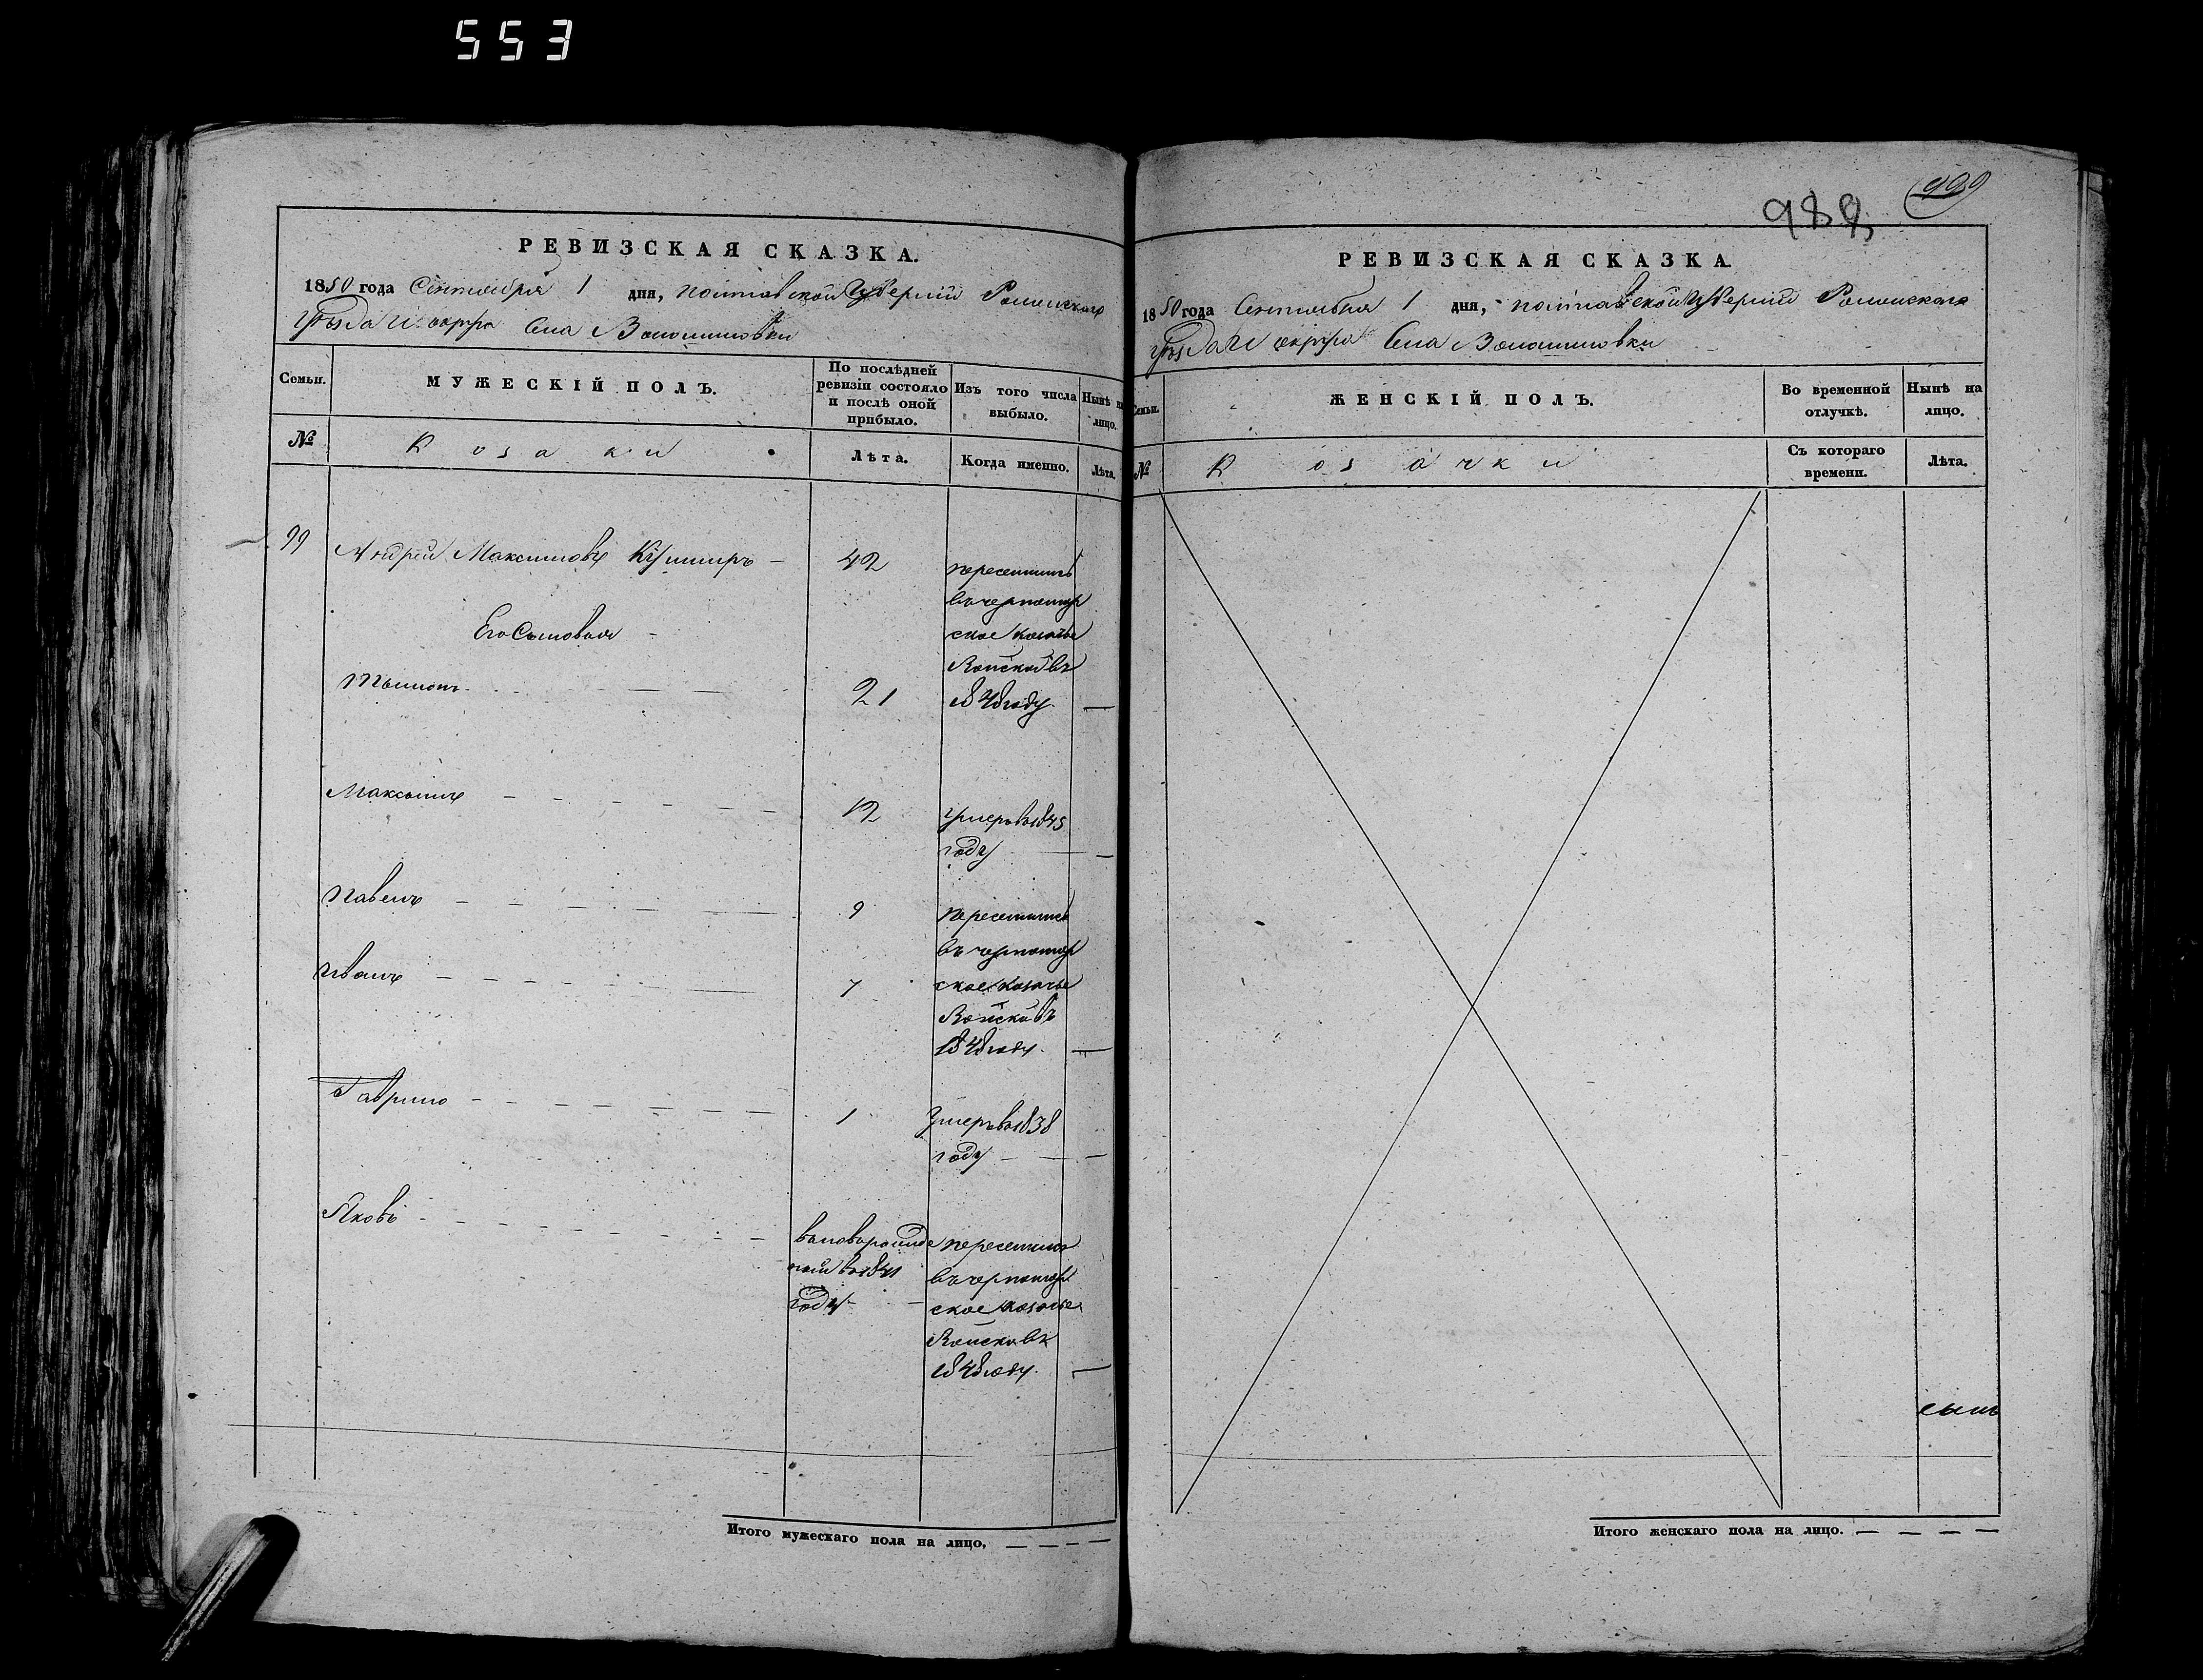 553
999
988
РЕВИЗСКАЯ СКАЗКА.
1850 года Сентября 1 дня, Полтавской Губерніи Роменскаго
уѣзда и округа Села Волошиновки
Семьи.
МУЖЕСКІЙ ПОЛЪ.
По послѣдней ревизіи состояло и послѣ оной прибыло.
Изъ того числа выбыло.
Нынѣ на лицо.
№
Козаки
Лѣта.
Когда именно.
Лѣта.
99 Андрей Максимовъ Кушниръ 42 переселились
въ черномор
ское козачье
Его Сыновья
Войско въ
21 1848 году
Максимъ 12 умеръ в 1845
году
Павелъ 9 переселились
въ черномор
Иванъ 7 ское козачье
Войско въ
1848 году
Гаврило 1 Умеръ в 1838
году
Яковъ
вновь рожде
ный в 1841
году
переселился
въ черномор
ское козачье
Войско въ
1848 году
Итого мужескаго пола на лицо.
РЕВИЗСКАЯ СКАЗКА.
1850 года Сентября 1 дня, Полтавской Губерніи Роменскаго
уѣзда и округа Села Волошиновки
Семьи.
ЖЕНСКІЙ ПОЛЪ.
Во временной отлучкѣ.
Нынѣ на лицо.
№
Козачки
Съ котораго времени.
Лѣта.
Итого женскаго пола на лицо.